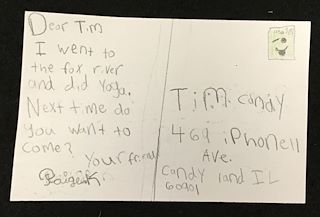 Dear Tim
I went to
the fox river
and did yoga.
Next time do
you want to
come?
Your friend
Paige K
Tim candy
469 iPhone11
Ave.
Candy land IL
60901